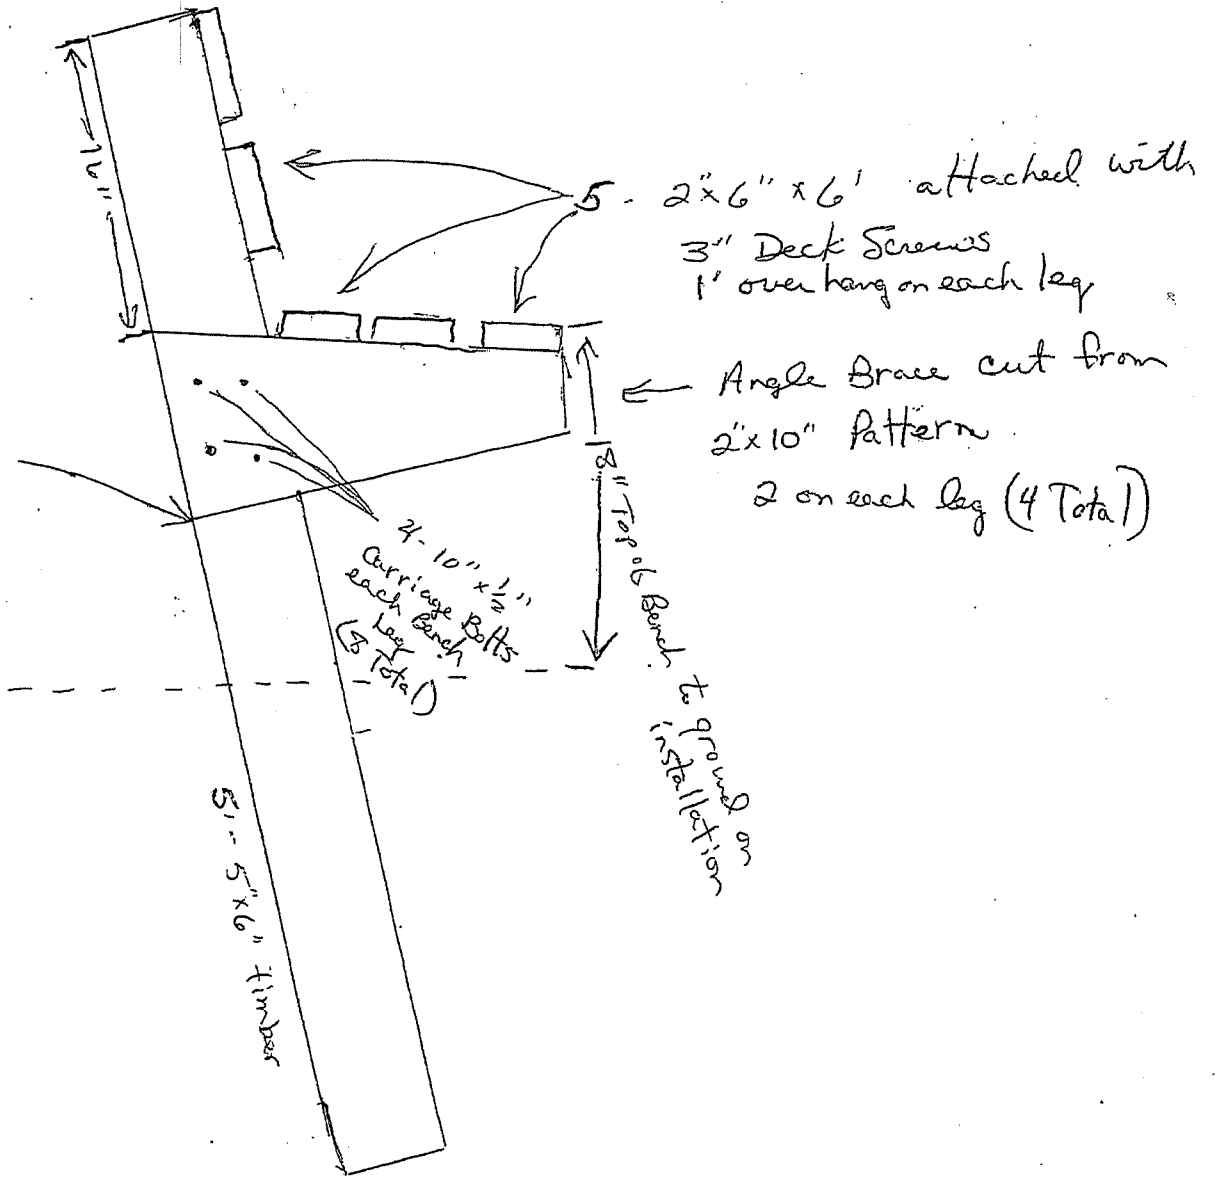 16"
5 - 2"x6" x 6' attached with
3" Deck Screws
1' overhang on each leg
Angle Brace cut from
2"x10" Pattern
2 on each leg (4 Total)
4 - 10" x 1/2"
Carriage Bolts
each Bench
Leg
(8 Total)
18" Top of Bench to ground on
installation
5' - 5"x6" timber